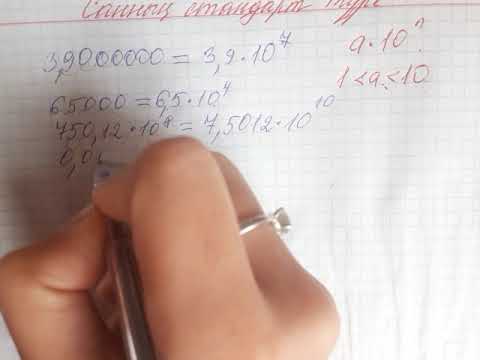 Санның стандарт түрі
3,9000000 = 3,9·10⁷
a·10ⁿ
1<a<10
65000 = 6,5·10⁴
750,12·10⁸ = 7,5012·10¹⁰
0,0